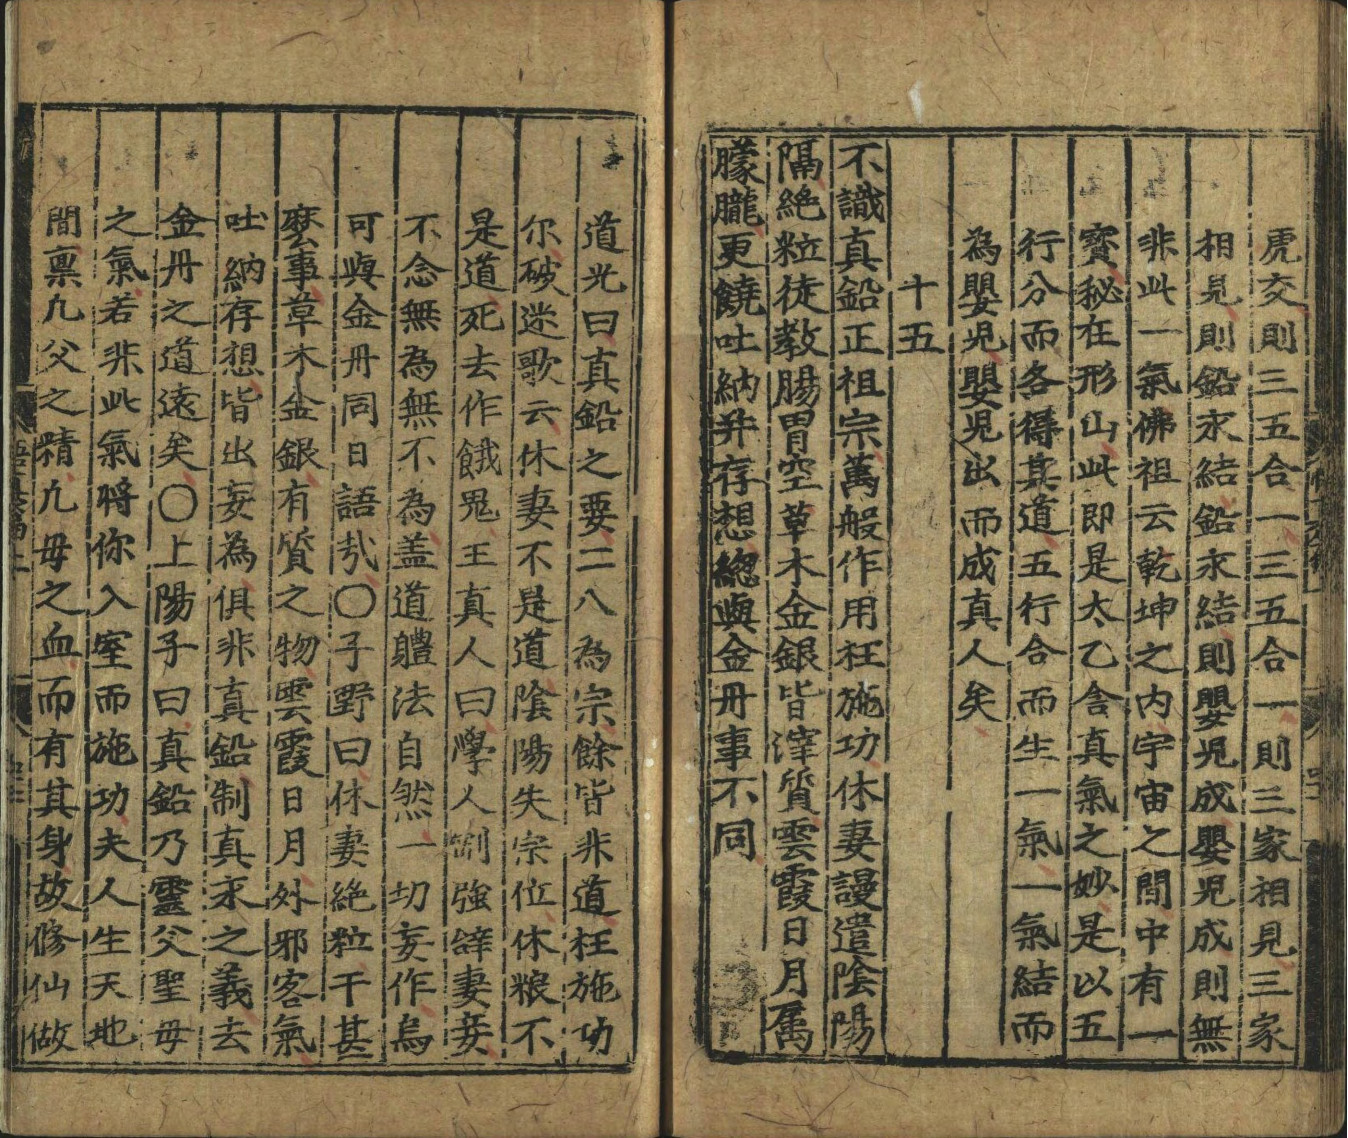 虎交則三五合一三五合一則三家相見三家
相見則鉛汞結鉛汞結則嬰児成嬰児成則無
非此一氣佛祖云乾坤之內宇宙之間中有一
寶秘在形山此即是太乙含真氣之妙是以五
行分而各得其道五行合而生一氣一氣結而
為嬰児嬰児出而成真人矣
十五
不識真鉛正祖宗萬般作用枉施功休妻謾遣陰陽
隔絶粒徒教腸胃空草木金銀皆滓質雲霞日月屬
朦朧更饒吐納并存想緫與金丹事不同
道光曰真鉛之要二八為宗餘皆非道枉施功
尔破迷歌云休妻不是道陰陽失宗位休粮不
是道死去作餓鬼王真人曰學人剬強辞妻妾
不念無為無不為盖道軆法自然一切妄作烏
可與金丹同日語㢤〇子野曰休妻絶粒干甚
麽事草木金銀有質之物雲霞日月外邪客氣
吐納存想皆出妄為俱非真鉛制真汞之義去
金丹之道遠矣〇上陽子曰真鉛乃靈父聖母
之氣若非此氣將你入室而施功夫人生天地
間禀九父之精九母之血而有其身故修仙做
悟真篇上